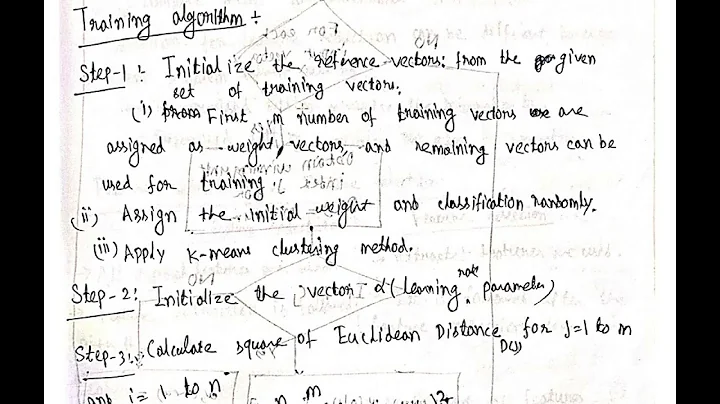 Training algorithm :-
Step-1 :- Initialize the reference vectors: from the given
set of training vectors.
(i) from First m number of training vectors are
assigned as weight vectors and remaining vectors can be
used for training.
(ii) Assign the initial weight and classification randomly.
(iii) Apply K-means clustering method.
Step-2: Initialize the vector α (learning rate parameter)
Step-3: Calculate square of Euclidean Distance for J=1 to m
D(J)
and i= 1 to n
n m